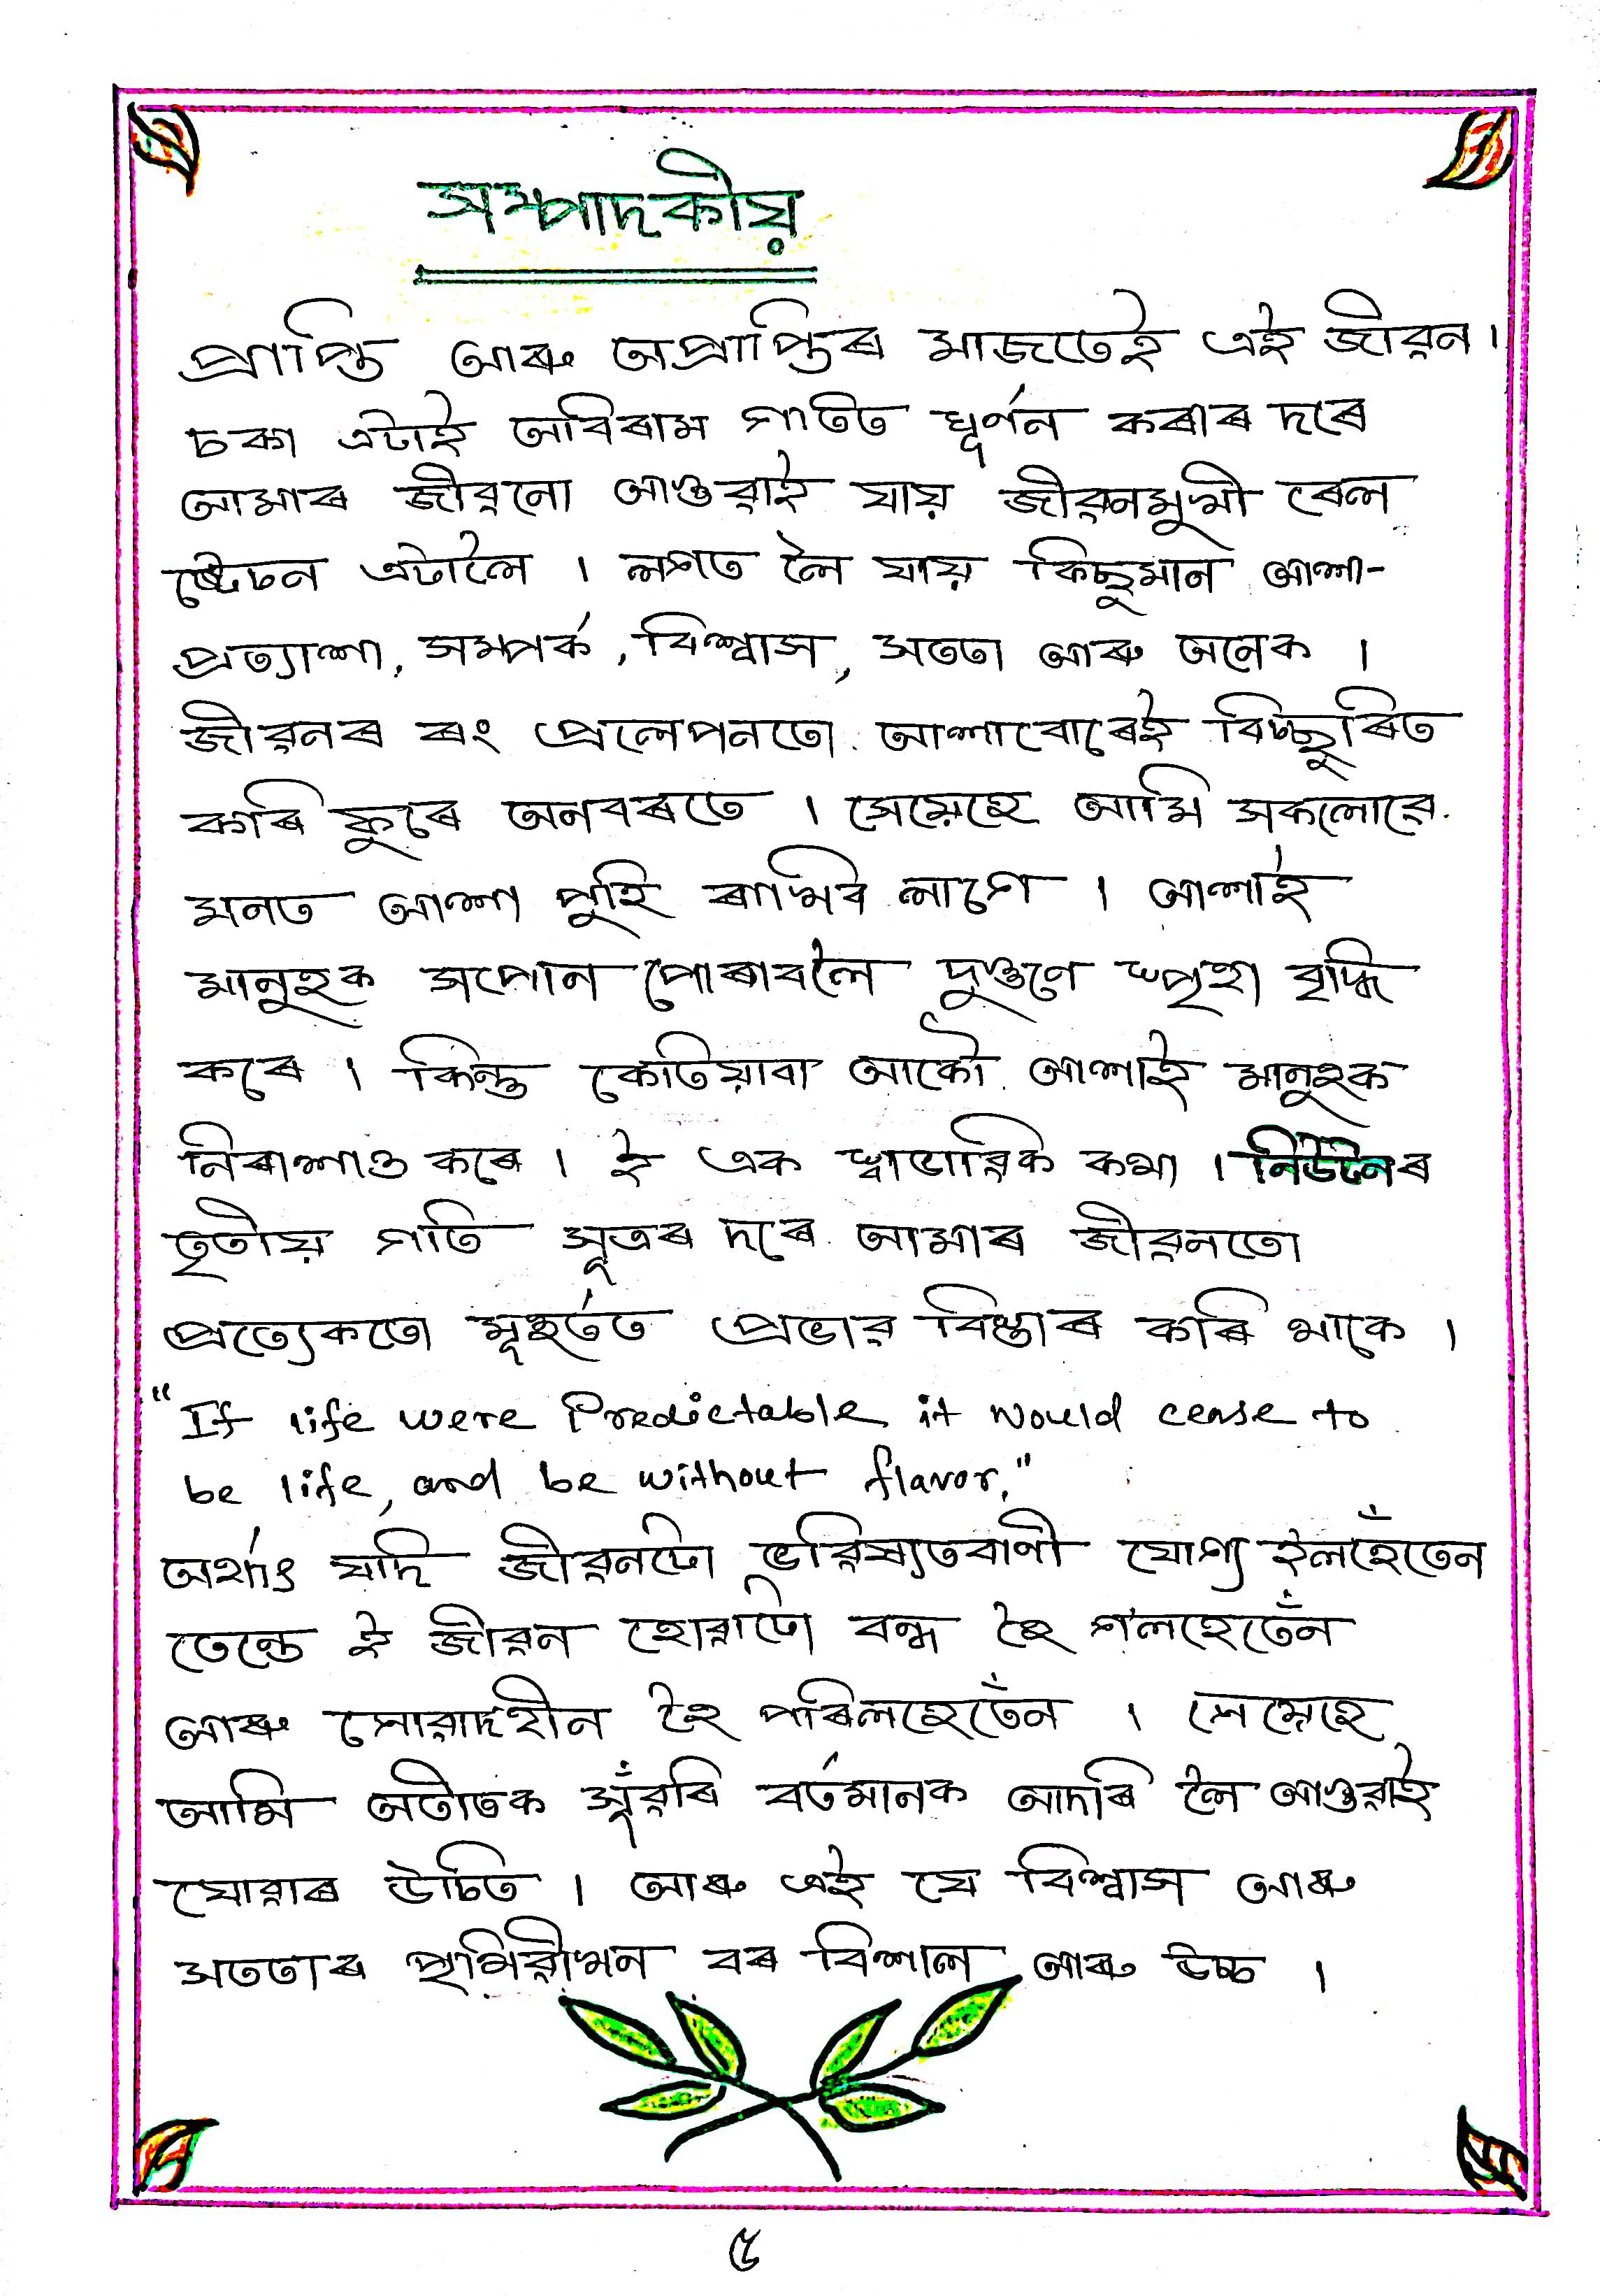 সম্পাদকীয়
প্ৰাপ্তি আৰু অপ্ৰাপ্তিৰ মাজতেই এই জীৱন।
চকা এটাই অবিৰাম গতিত ঘূৰ্ণন কৰাৰ দৰে
আমাৰ জীৱনো আগুৱাই যায় জীৱনমুখী ৰেল
ষ্টেচন এটালৈ । লগত লৈ যায় কিছুমান আশা-
প্ৰত্যাশা, সম্পৰ্ক, বিশ্বাস, সততা আৰু অনেক ।
জীৱনৰ ৰং প্ৰলেপনতো আশাবোৰেই বিচ্ছুৰিত
কৰি ফুৰে অনবৰতে । সেয়েহে আমি সকলোৱে
মনত আশা পুহি ৰাখিব লাগে । আশাই
মানুহক সপোন পোৰাবলৈ দুগুণে স্পৃহা বৃদ্ধি
কৰে । কিন্তু কেতিয়াবা আকৌ আশাই মানুহক
নিৰাশাও কৰে । ই এক স্বাভাৱিক কথা । নিউটনৰ
তৃতীয় গতি সূত্ৰৰ দৰে আমাৰ জীৱনতো
প্ৰত্যেকতো মূহুৰ্তত প্ৰভাৱ বিস্তাৰ কৰি থাকে ।
"If life were Predictable it would cease to
be life, and be without flavor."
অৰ্থাৎ যদি জীৱনটো ভৱিষ্যতবাণী যোগ্য হ'লহেঁতেন
তেন্তে ই জীৱন হোৱাটো বন্ধ হৈ গ'লহেতেঁন
আৰু সোৱাদহীন হৈ পৰিলহেতেঁন । সেয়েহে
আমি অতীতক সূঁৱৰি বৰ্তমানক আদৰি লৈ আগুৱাই
যোৱাৰ উচিত । আৰু এই যে বিশ্বাস আৰু
সততাৰ পৃথিৱীখন বৰ বিশাল আৰু উচ্চ ।
৫